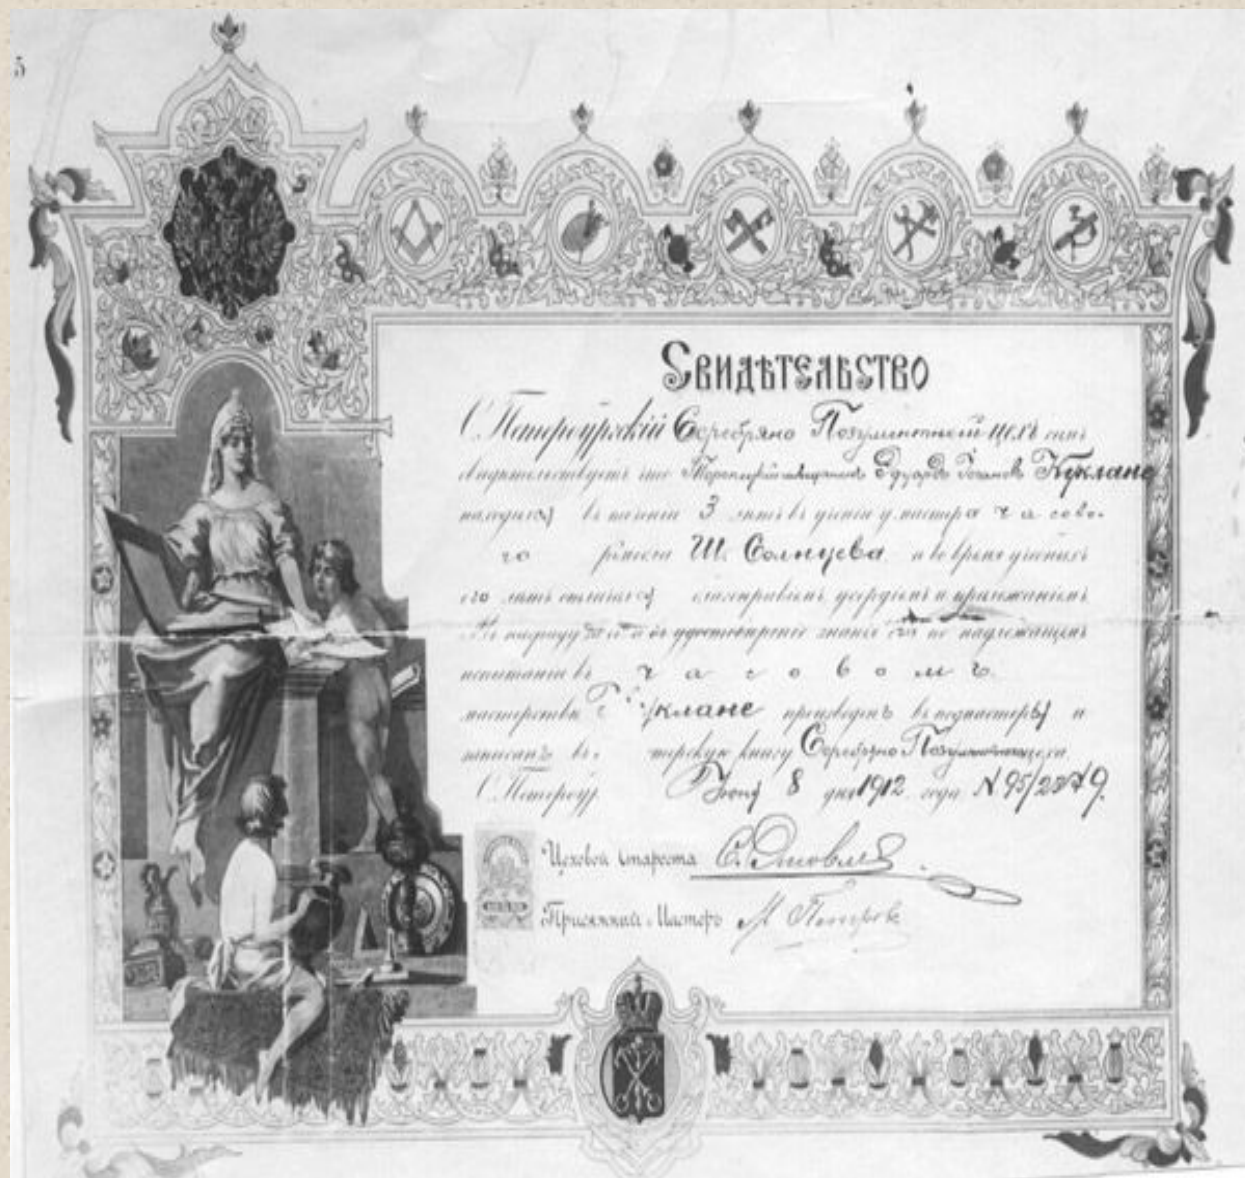 5
Свидѣтельство
С. Петербургскій Серебряно Позументный цехъ симъ
свидѣтельствуетъ что Эдуардъ Іогановъ Куклане
находился въ теченіи 3 лѣтъ въ ученіи у мастера часово-
го ремесла Ш. Солнцева и во время ученическихъ
его лѣтъ отличался благонравіемъ усердіемъ и прилежаніемъ
Въ награду за то и въ удостовѣреніе знанія его по надлежащемъ
испытаніи въ часовомъ
мастерствѣ Куклане произведенъ въ подмастерья и
записанъ въ книгу Серебряно Позументнаго цеха.
С. Петербур. 8 дня 1912 года N 95/
Цеховой Староста
Присяжный Мастеръ М Петровъ